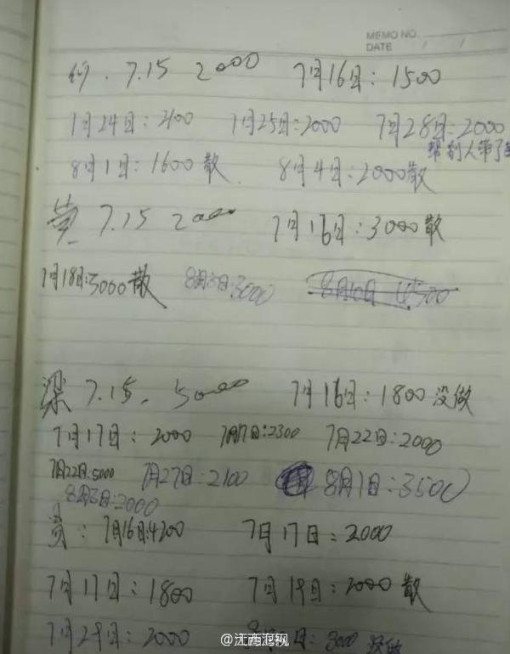 MEMO NO.
DATE / /
何. 7.15 2000 7月16日:1500
7月24日:2100 7月25日:2000 7月28日:2000
帮别人带了
8月1日:1600散 8月4日:2000散
黄 7.15 2000 7月16日:3000散
7月18日:5000散 8月3日:3000 8月10日 4500
梁 7.15. 5000 7月16日:1800没做
7月17日:2000 7月17日:2300 7月22日:2000
7月22日:5000 7月27日:2100 8月1日:3500
8月3日:2000
7月16日:4200 7月17日:2000
7月17日:1800 7月19日:2000散
7月29日:2000 日:3000 没做
@江西电视